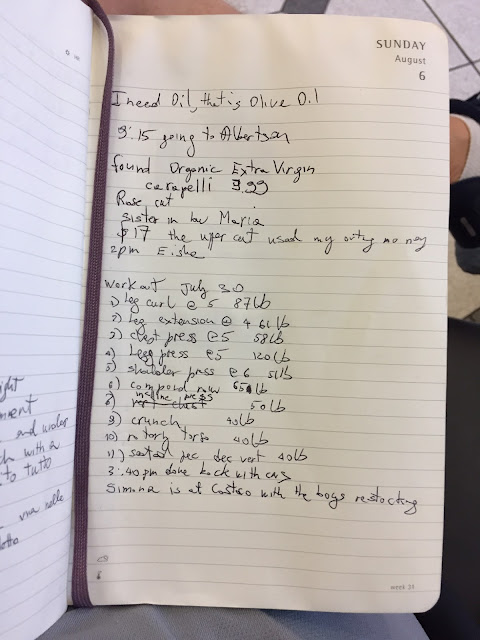 SUNDAY
August
6
I need Oil, that is Olive Oil
3:15 going to Albertson
found Organic Extra Virgin
carapelli 9.99
Rose cut
sister in law Maria
$17 the upper cut used my outing money
2pm
Workout July 30
1) leg curl @ 5 87lb
2) leg extension @ 4 61lb
3) chest press @5 58lb
4) Legg press @5 120lb
5) shoulder press @ 6 51lb
6) compound row 65lb
incline press
8) vert chest 50lb
9) crunch 40lb
10) rotary torso 40lb
11) seated pec dec vert 40lb
3:40pm done back with
Simona is at Costco with the boys restocking
week 31
ight
ment
and
ch with a
to tutto
una nella